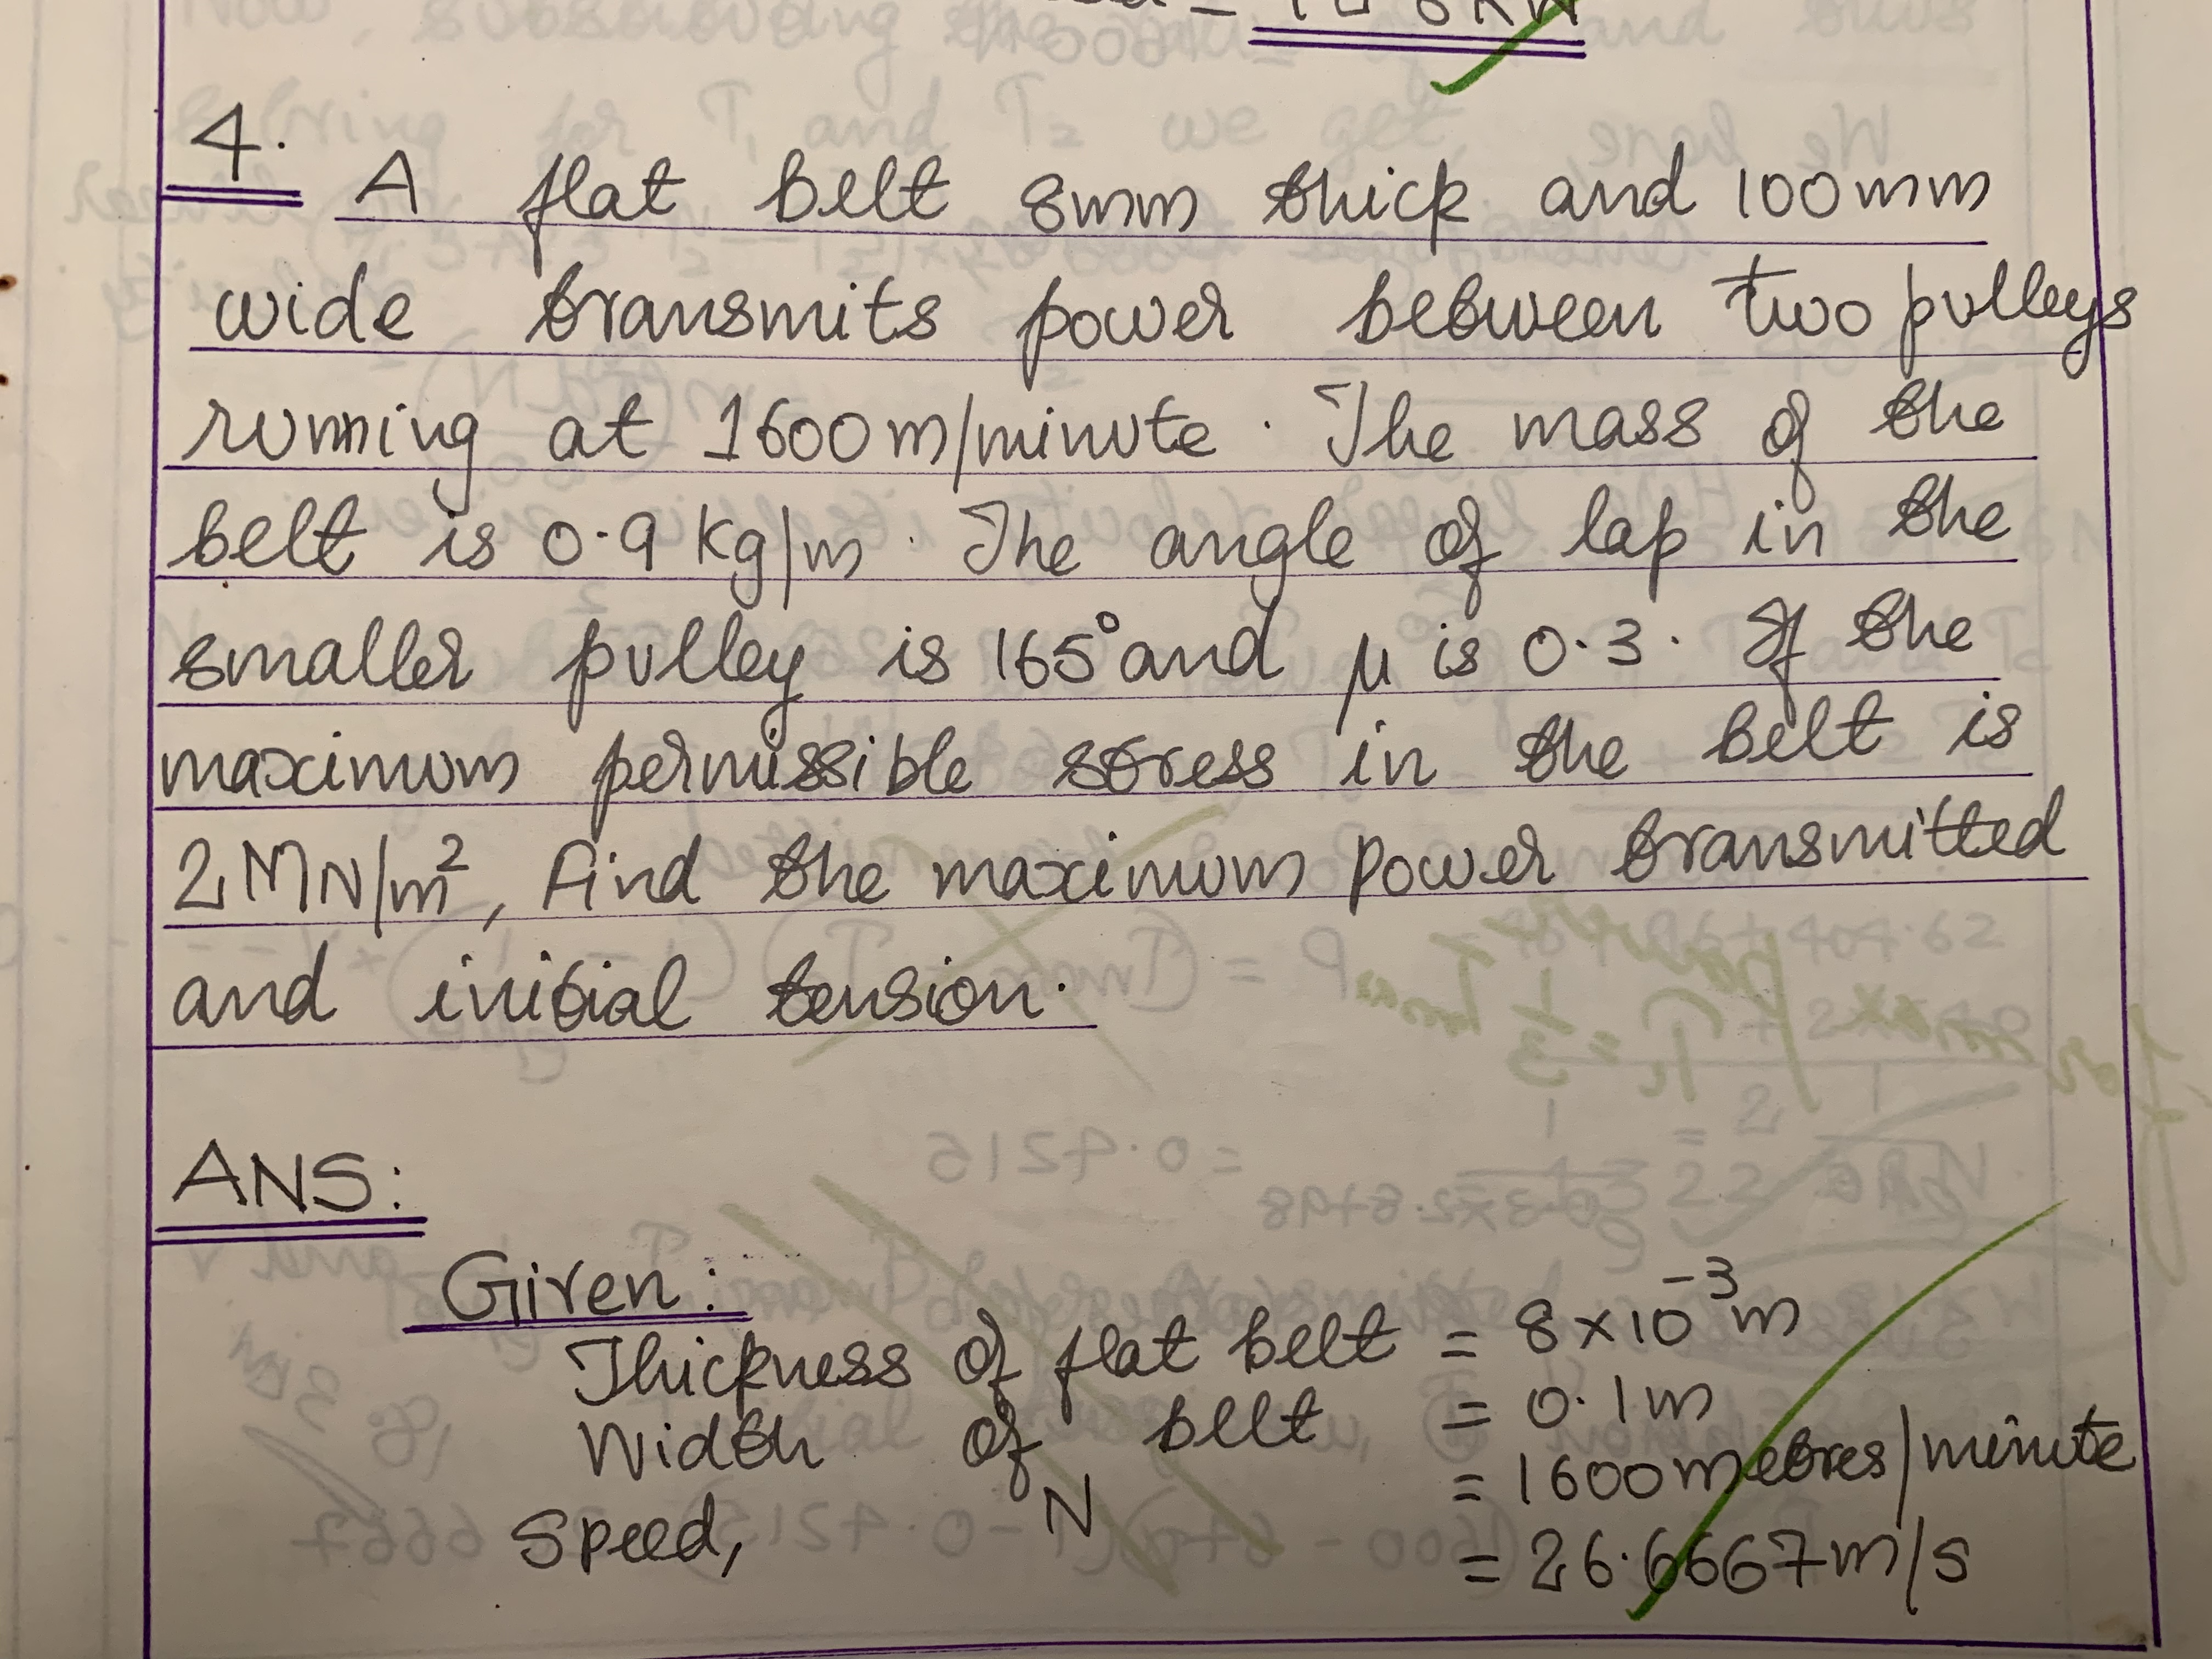 4. A flat belt 8mm thick and 100mm
wide transmits power between two pulleys
running at 1600m/minute. The mass of the
belt is 0.9 kg/m. The angle of lap in the
smaller pulley is 165° and μ is 0.3. If the
maximum permissible stress in the belt is
2MN/m², Find the maximum power transmitted
and initial tension.
ANS:
Given:
Thickness of flat belt = 8×10⁻³m
Width of belt = 0.1m
Speed, N = 1600metres/minute
= 26.6667m/s